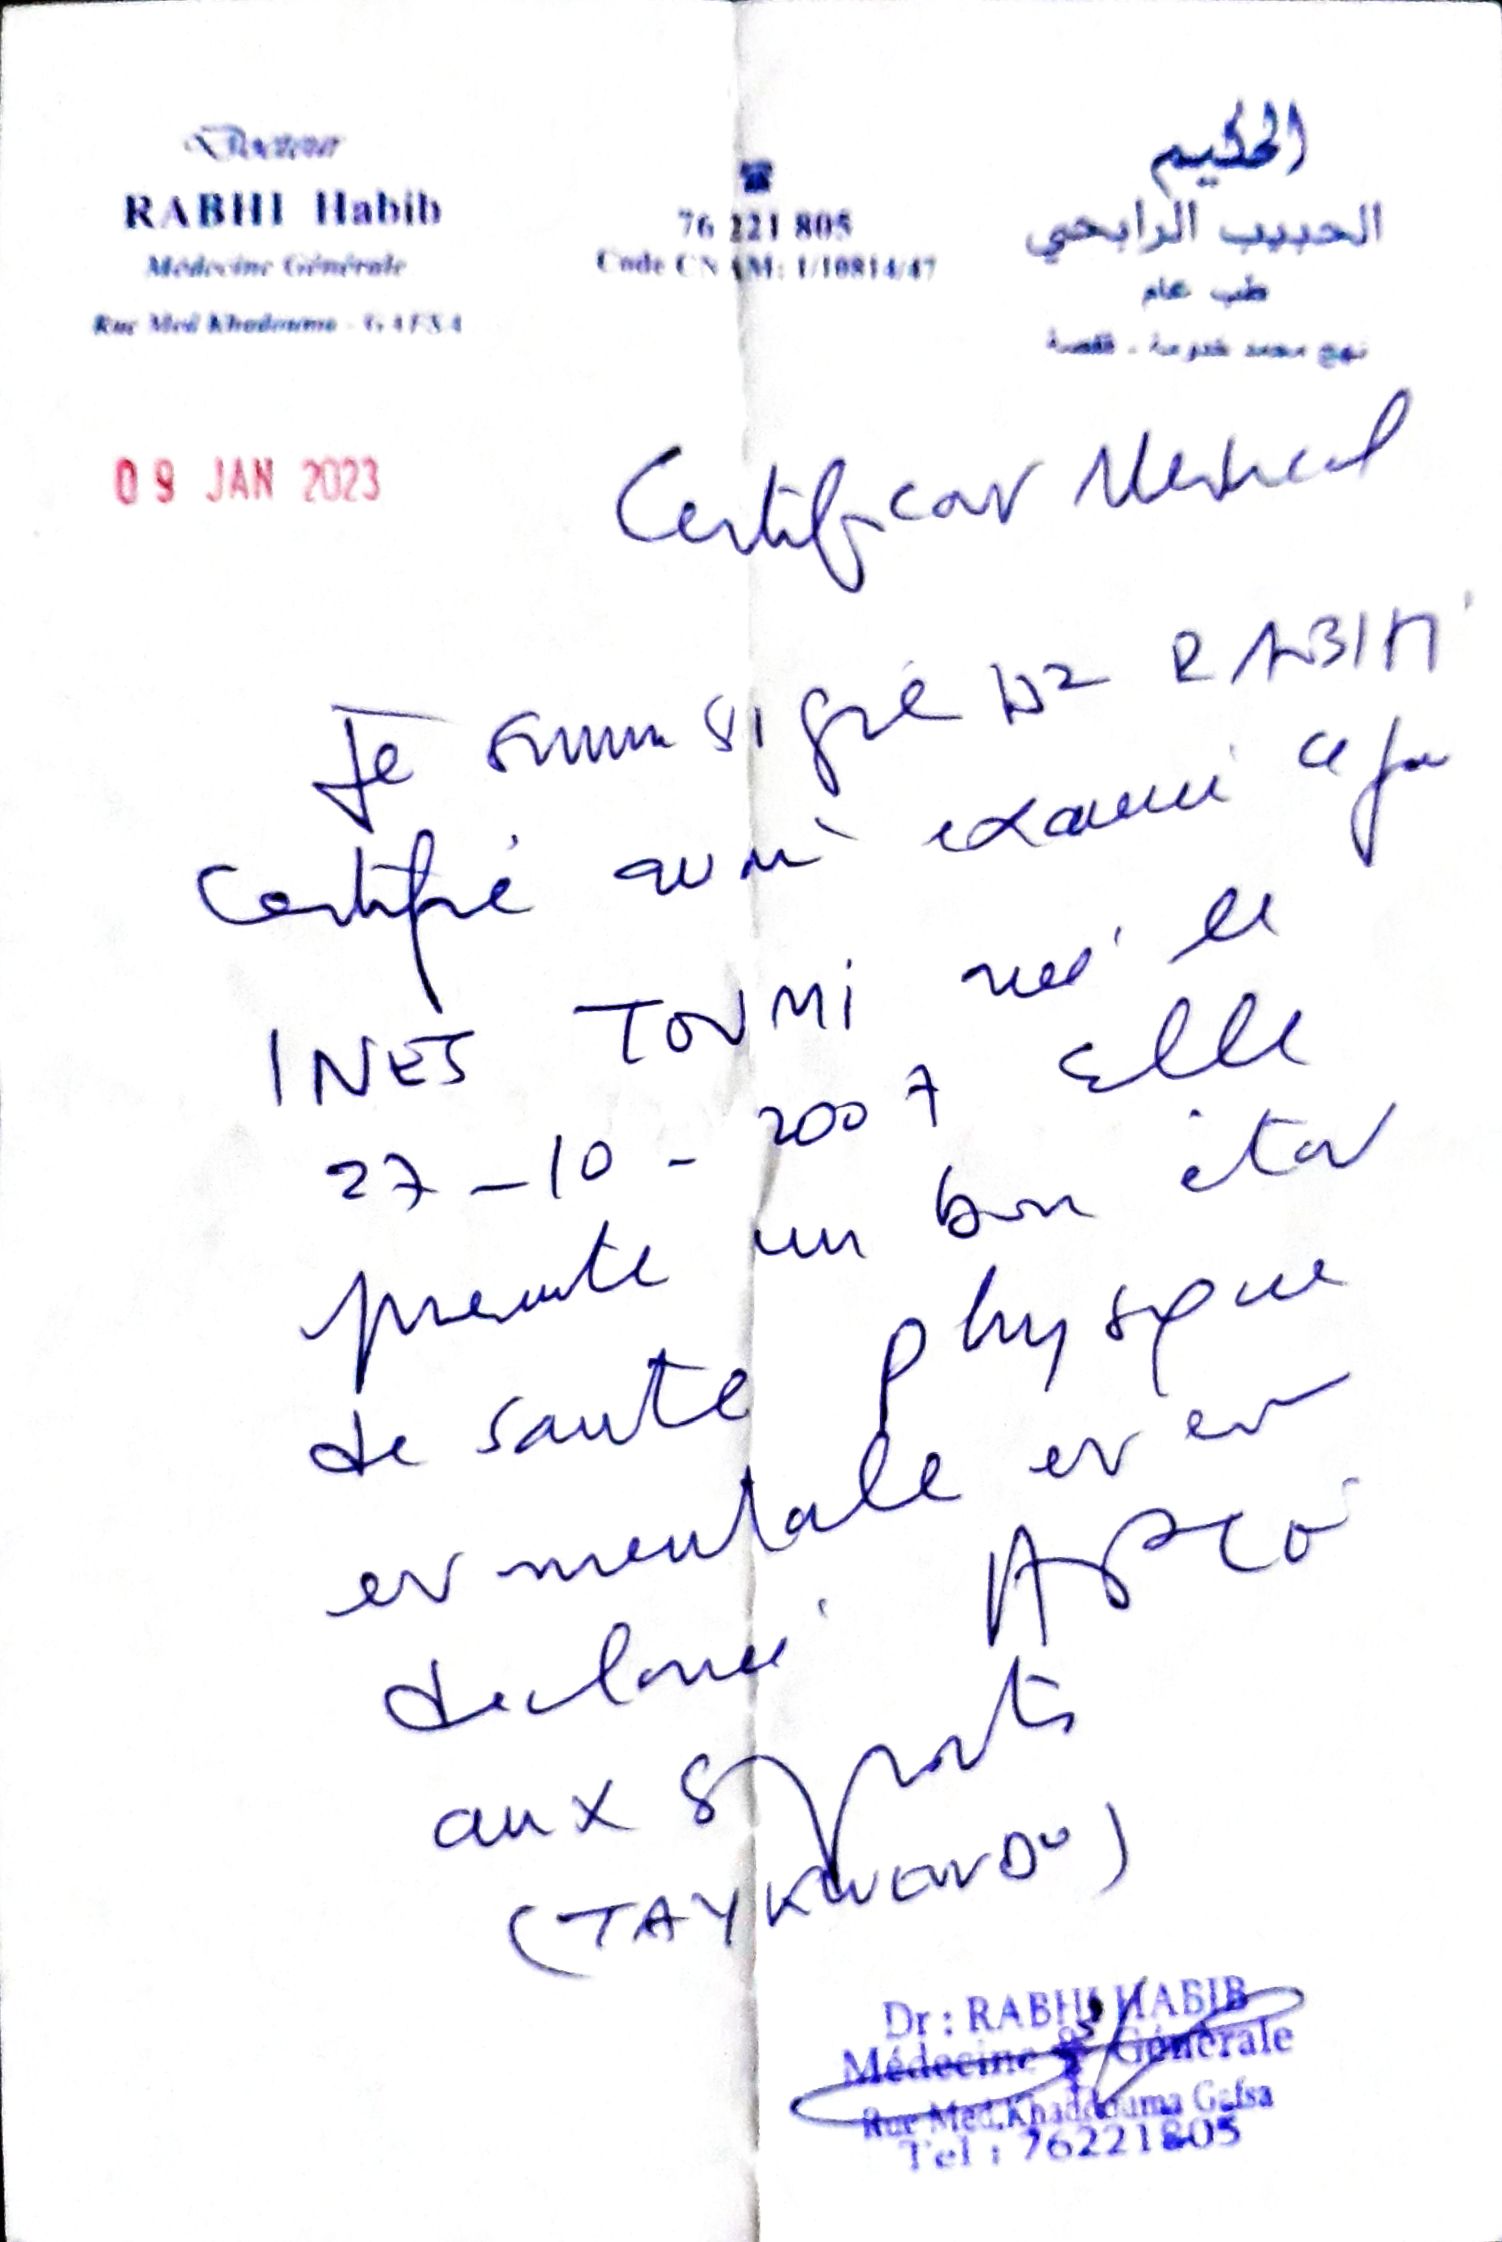 Docteur
RABHI Habib
Médecine Générale
Rue Med Khadouma - GAFSA
☎
76 221 805
Code CNAM: 1/10814/47
الحكيم
الحبيب الرابحي
طب عام
نهج محمد خدومة - قفصة
09 JAN 2023
Certificat Medical
Je soussigné Dr RABHI
Certifié avoir examiné ce jour
INES TOUMI née le
27-10-2007 Elle
presente un bon état
de santé physique
et mentale et est
declarée APTE
aux sports
(TAYKWENDO)
Dr : RABHI HABIB
Médecine Générale
Rue Med.Khaddouma Gafsa
Tel : 76221805